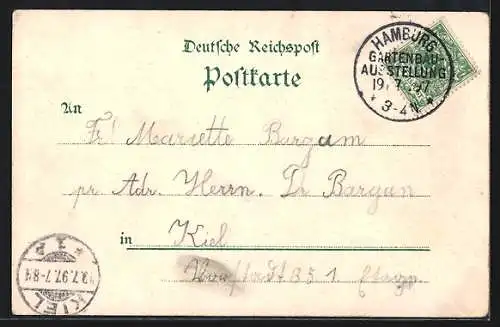 Deutsche Reichspost
Postkarte
HAMBURG
GARTENBAU-
AUSSTELLUNG
19. 7. 97
3-4 N
An
Frl Mariette Burgam
pr. Adr. Herrn. Dr Bargum
in Kiel
35 I Etage
KIEL
7.97. 7-8